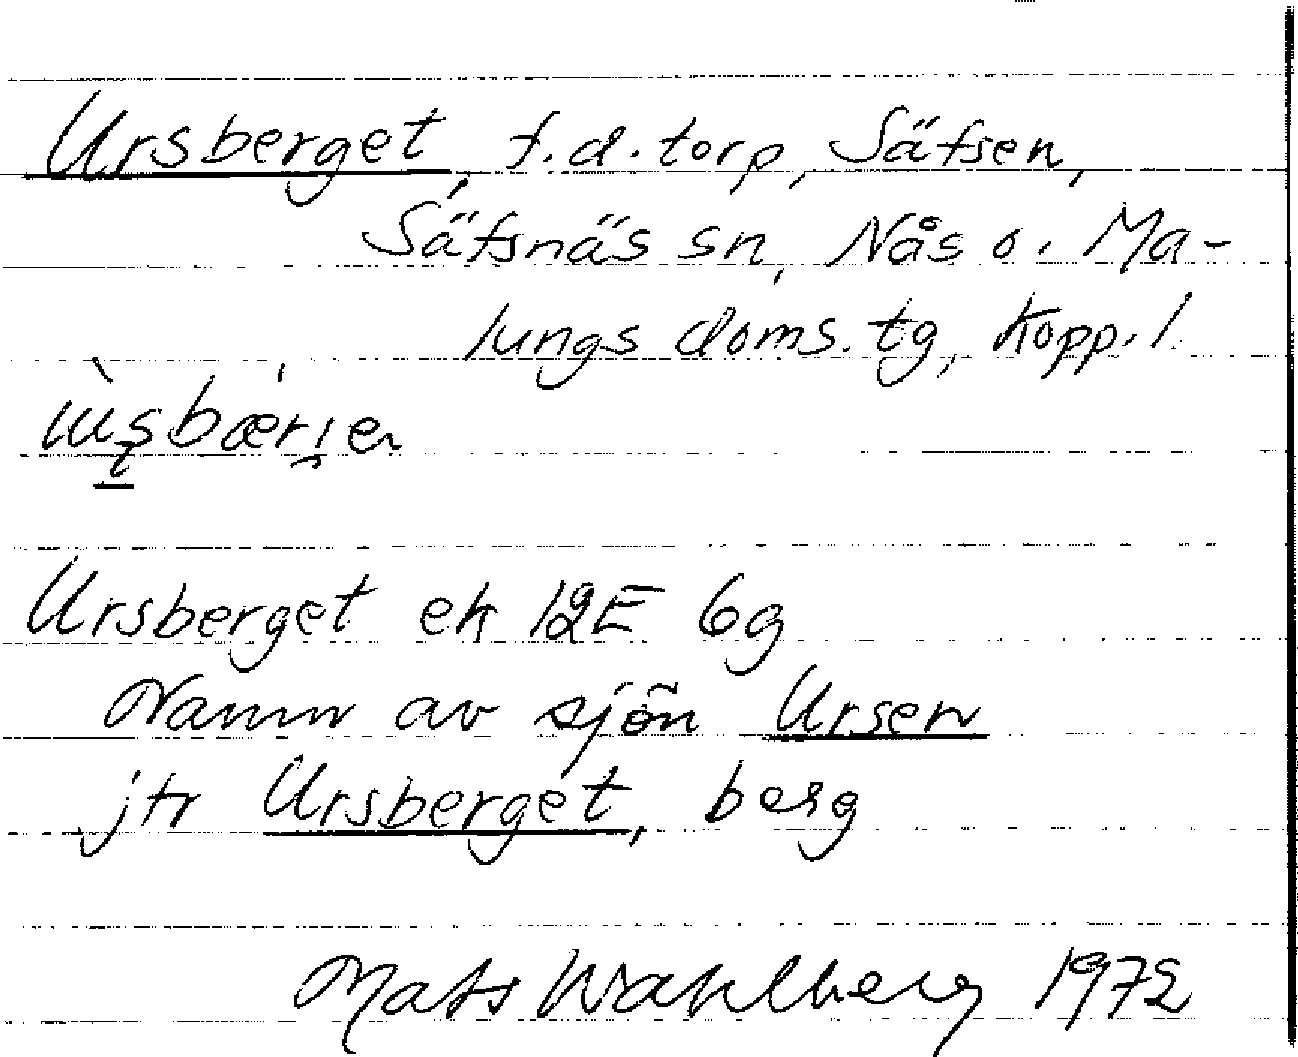 Ursberget, f.d. torp, Säfsen,
Säfsnäs sn, Nås o. Ma-
lungs doms. tg, Kopp. l.
Ursberget ek 12E 6g
Namn av sjön Ursen
jfr Ursberget, berg
Mats Wahlberg 1972